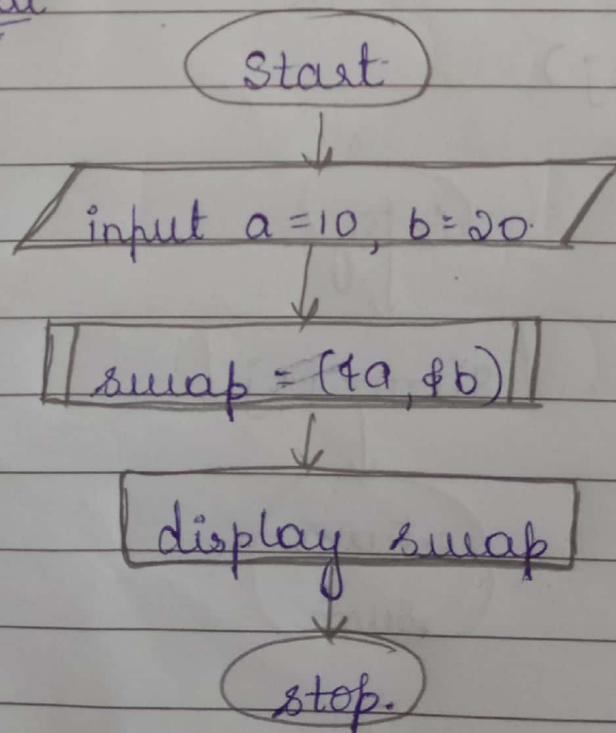 Start
input a = 10, b = 20.
swap = (&a, &b)
display swap
stop.